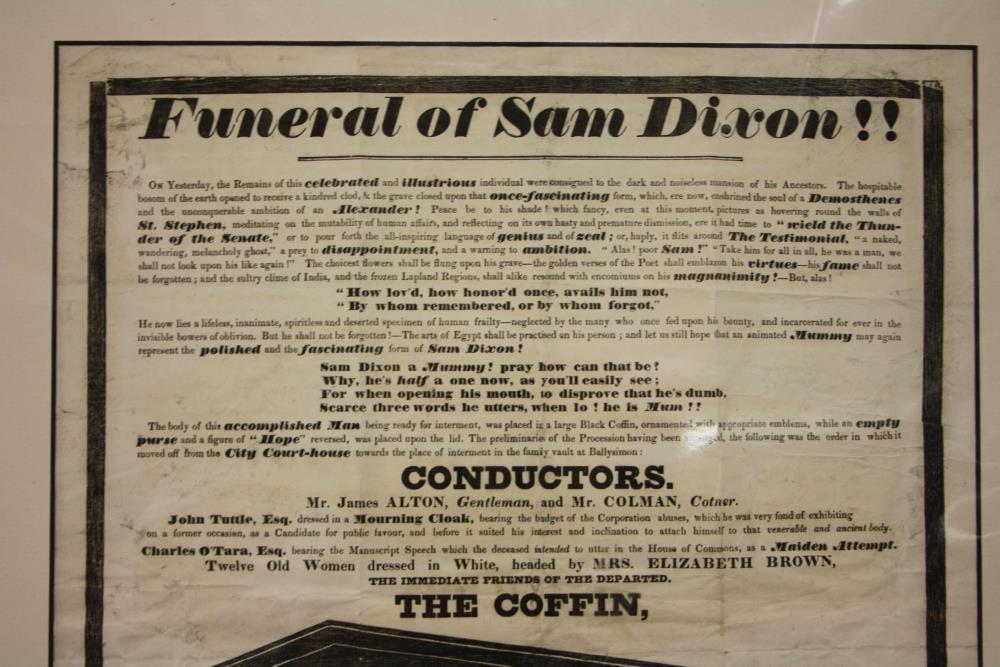 Funeral of Sam Dixon!!
On Yesterday, the Remains of this celebrated and illustrious individual were consigned to the dark and noiseless mansion of his Ancestors. The hospitable
bosom of the earth opened to receive a kindred clod, & the grave closed upon that once-fascinating form, which, ere now, enshrined the soul of a Demosthenes
and the unconquerable ambition of an Alexander! Peace be to his shade! which fancy, even at this moment, pictures as hovering round the walls of
St. Stephen, meditating on the mutability of human affairs, and reflecting on its own hasty and premature dismission, ere it had time to "wield the Thun-
der of the Senate," or to pour forth the all-inspiring language of genius and of zeal; or, haply, it flits around The Testimonial, "a naked,
wandering, melancholy ghost," a prey to disappointment, and a warning to ambition. "Alas! poor Sam!" "Take him for all in all, he was a man, we
shall not look upon his like again!" The choicest flowers shall be flung upon his grave—the golden verses of the Poet shall emblazon his virtues—his fame shall not
be forgotten; and the sultry clime of India, and the frozen Lapland Regions, shall alike resound with encomiums on his magnanimity!—But, alas!
"How lov'd, how honor'd once, avails him not,
"By whom remembered, or by whom forgot,"
He now lies a lifeless, inanimate, spiritless and deserted specimen of human frailty—neglected by the many who once fed upon his bounty, and incarcerated for ever in the
invisible bowers of oblivion. But he shall not be forgotten!—The arts of Egypt shall be practised on his person; and let us still hope that an animated Mummy may again
represent the polished and the fascinating form of Sam Dixon!
Sam Dixon a Mummy! pray how can that be?
Why, he's half a one now, as you'll easily see;
For when opening his mouth, to disprove that he's dumb,
Scarce three words he utters, when lo! he is Mum!!
The body of this accomplished Man being ready for interment, was placed in a large Black Coffin, ornamented with appropriate emblems, while an empty
purse and a figure of "Hope" reversed, was placed upon the lid. The preliminaries of the Procession having been arranged, the following was the order in which it
moved off from the City Court-house towards the place of interment in the family vault at Ballysimon:
CONDUCTORS.
Mr. James ALTON, Gentleman, and Mr. COLMAN, Cotner.
John Tuttle, Esq. dressed in a Mourning Cloak, bearing the budget of the Corporation abuses, which he was very fond of exhibiting
on a former occasion, as a Candidate for public favour, and before it suited his interest and inclination to attach himself to that venerable and ancient body.
Charles O'Tara, Esq. bearing the Manuscript Speech which the deceased intended to utter in the House of Commons, as a Maiden Attempt.
Twelve Old Women dressed in White, headed by MRS. ELIZABETH BROWN,
THE IMMEDIATE FRIENDS OF THE DEPARTED.
THE COFFIN,